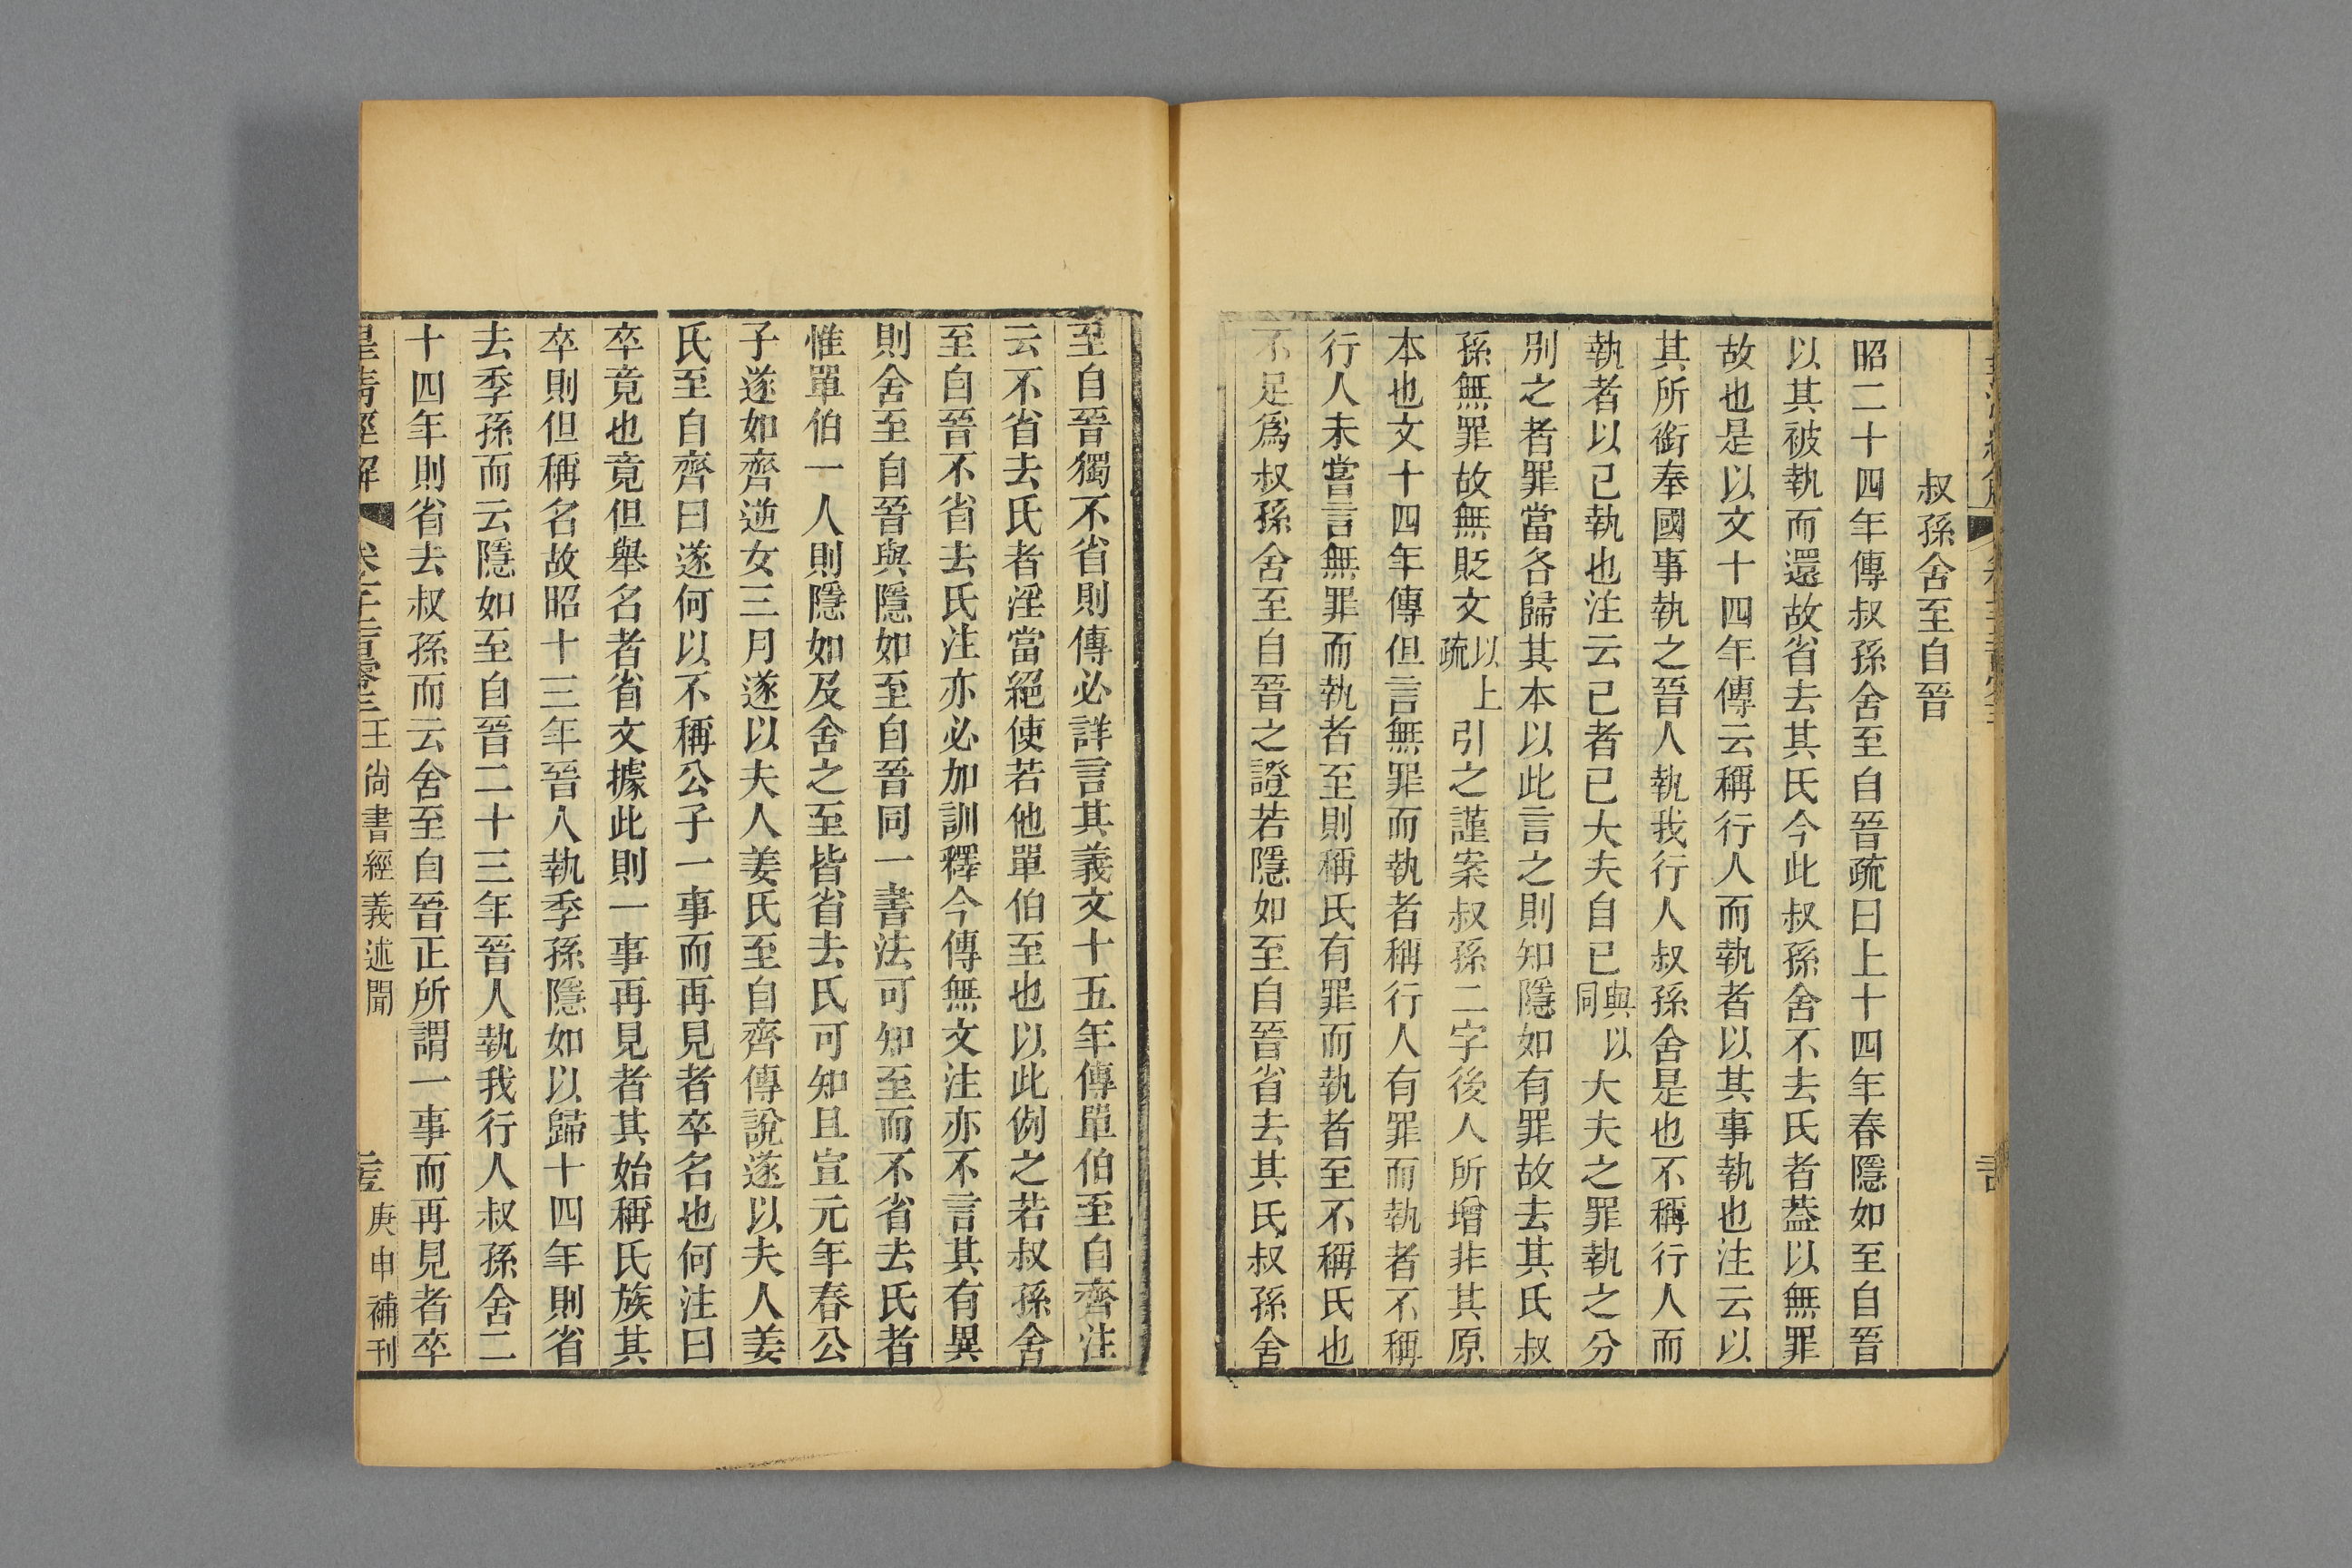 叔孫舍至自晉
昭二十四年傳叔孫舍至自晉疏曰上十四年春隱如至自晉
以其被執而還故省去其氏今此叔孫舍不去氏者蓋以無罪
故也是以文十四年傳云稱行人而執者以其事執也注云以
其所銜奉國事執之晉人執我行人叔孫舍是也不稱行人而
執者以已執也注云已者已大夫自已與以同大夫之罪執之分
別之者罪當各歸其本以此言之則知隱如有罪故去其氏叔
孫無罪故無貶文以上疏引之謹案叔孫二字後人所增非其原
本也文十四年傳但言無罪而執者稱行人有罪而執者不稱
行人未嘗言無罪而執者至則稱氏有罪而執者至不稱氏也
不足為叔孫舍至自晉之證若隱如至自晉省去其氏叔孫舍
至自晉獨不省則傳必詳言其義文十五年傳單伯至自齊注
云不省去氏者淫當絕使若他單伯至也以此例之若叔孫舍
至自晉不省去氏注亦必加訓釋今傳無文注亦不言其有異
則舍至自晉與隱如至自晉同一書法可知至而不省去氏者
惟單伯一人則隱如及舍之至皆省去氏可知且宣元年春公
子遂如齊逆女三月遂以夫人姜氏至自齊傳說遂以夫人姜
氏至自齊曰遂何以不稱公子一事而再見者卒名也何注曰
卒竟也竟但舉名者省文據此則一事再見者其始稱氏族其
卒則但稱名故昭十三年晉人執季孫隱如以歸十四年則省
去季孫而云隱如至自晉二十三年晉人執我行人叔孫舍二
十四年則省去叔孫而云舍至自晉正所謂一事而再見者卒
皇清經解 王尚書經義述聞 庚申補刊